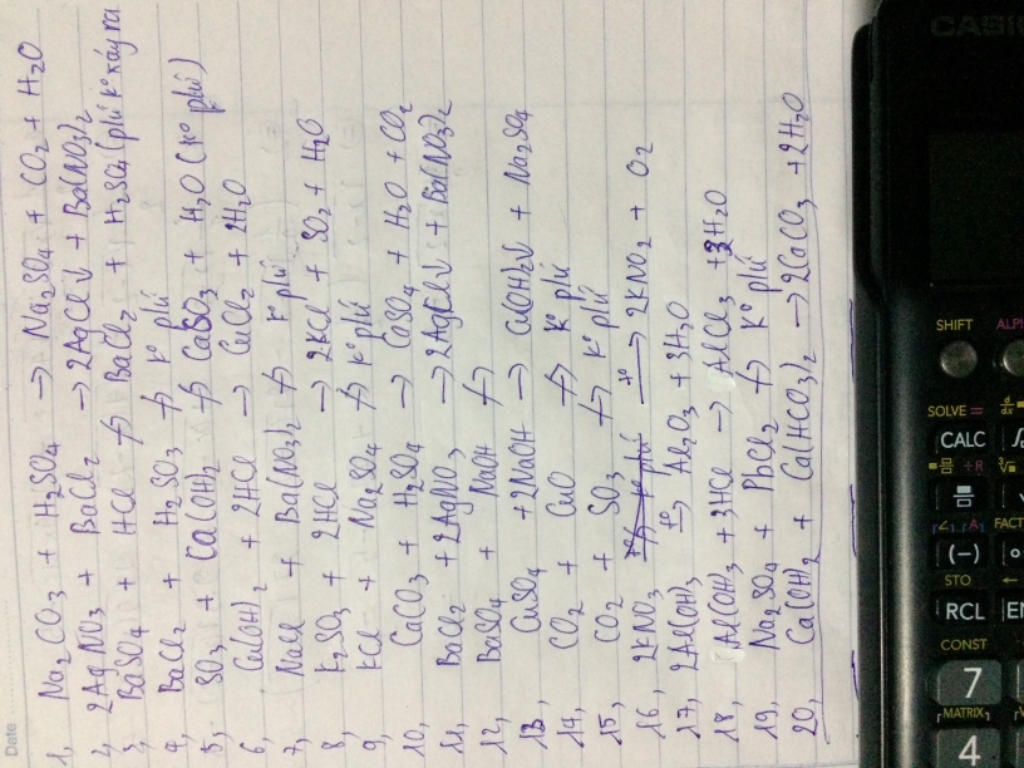 Date
1, Na2CO3 + H2SO4 → Na2SO4 + CO2 + H2O
2, 2AgNO3 + BaCl2 → 2AgCl↓ + Ba(NO3)2
3, BaSO4 + HCl ↛ BaCl2 + H2SO4 (pứ kº xảy ra
4, BaCl2 + H2SO3 ↛ kº pứ
5, SO3 + Ca(OH)2 ↛ CaSO3 + H2O (kº pứ)
6, Cu(OH)2 + 2HCl → CuCl2 + 2H2O
7, NaCl + Ba(NO3)2 ↛ kº pứ
8, K2SO3 + 2HCl → 2KCl + SO2 + H2O
9, KCl + Na2SO4 ↛ kº pứ
10, CaCO3 + H2SO4 → CaSO4 + H2O + CO2
11, BaCl2 + 2AgNO3 → 2AgCl↓ + Ba(NO3)2
12, BaSO4 + NaOH ↛
13, CuSO4 + 2NaOH → Cu(OH)2↓ + Na2SO4
14, CO2 + CuO ↛ kº pứ
15, CO2 + SO3 ↛ kº pứ
16, 2KNO3 tº→ 2KNO2 + O2
17, 2Al(OH)3 tº→ Al2O3 + 3H2O
18, Al(OH)3 + 3HCl → AlCl3 + 3H2O
19, Na2SO4 + PbCl2 ↛ kº pứ
20, Ca(OH)2 + Ca(HCO3)2 → 2CaCO3 + 2H2O
CASIO
SHIFT ALP
SOLVE = d/dx
CALC
÷R
A FACT
(−)
STO ←
RCL EN
CONST
7
MATRIX
4